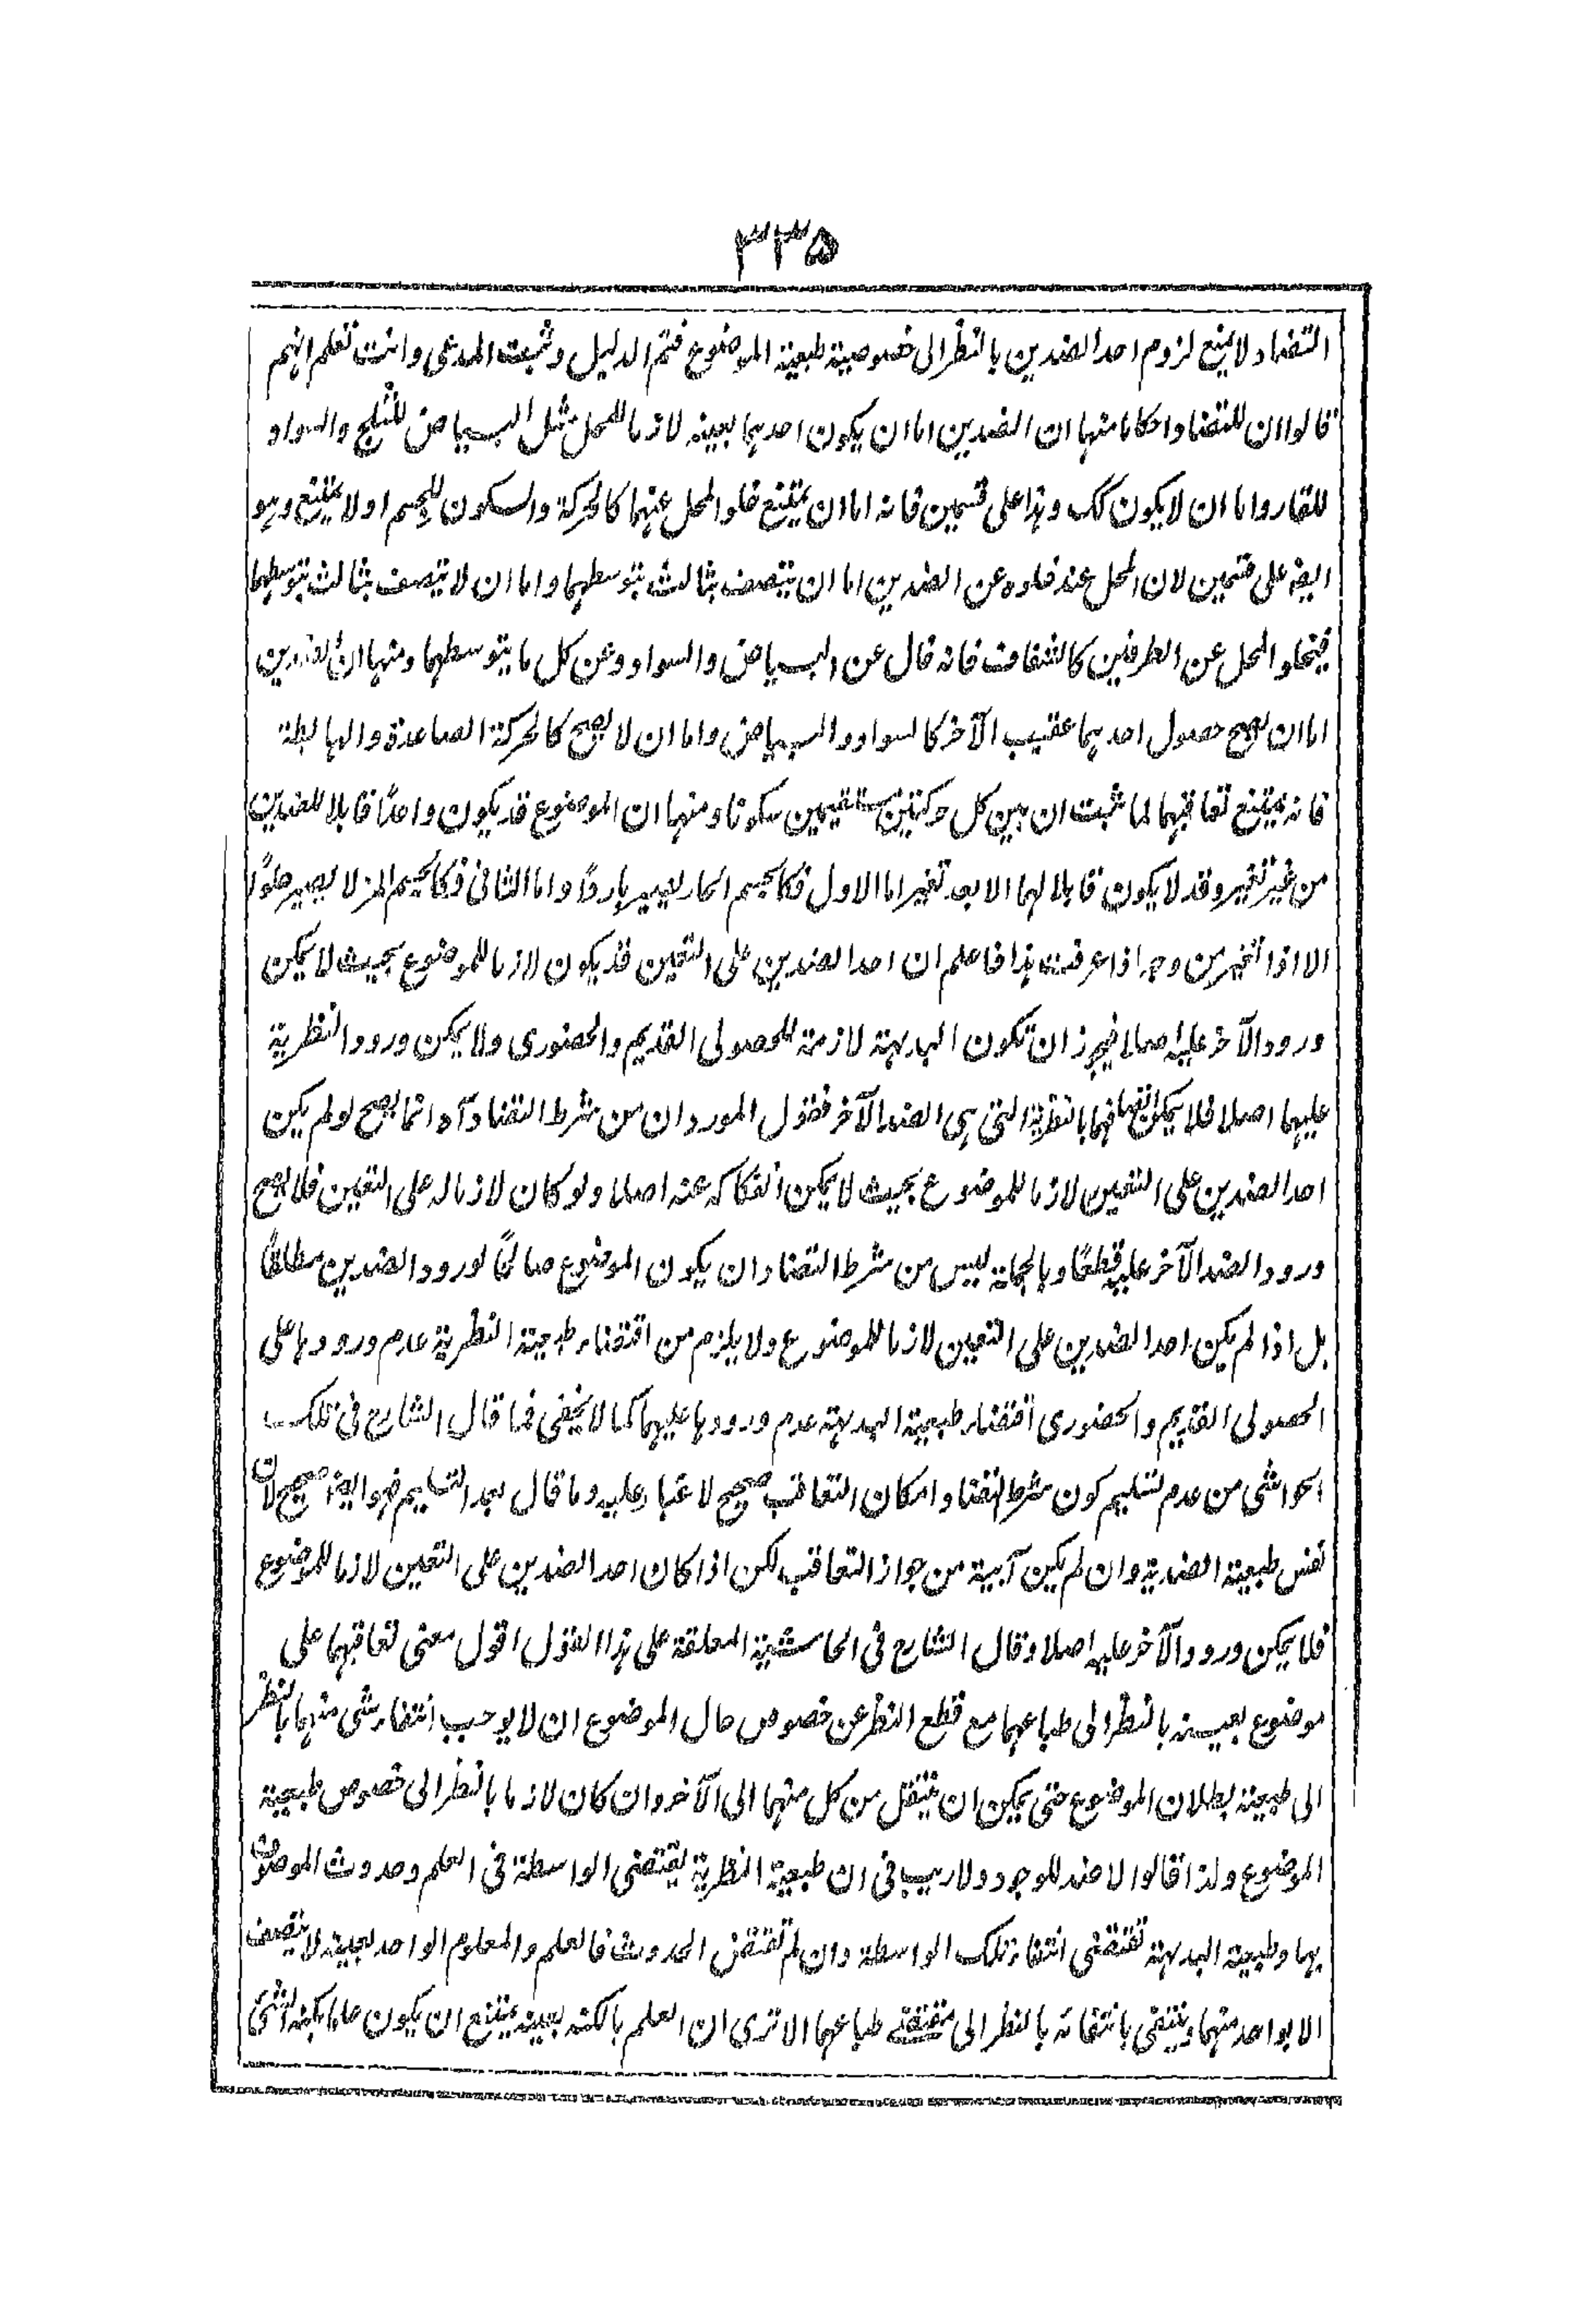 ۳۳۵
التضاد لا يمنع لزوم احد الضدين بالنظر الى خصوصية طبيعة الموضوع فتم الدليل وثبت المدعى وانت تعلم انهم
قالوا ان للتضاد احكاما منها ان الضدين اما ان يكون احدهما بعينه لازما للمحل مثل البياض للثلج والسواد
للقار واما ان لا يكون كك وهذا على قسمين فانه اما ان يمتنع خلو المحل عنهما كالحركة والسكون للجسم او لا يمتنع وهو
ايضا على قسمين لان المحل عند خلوه عن الضدين اما ان يتصف بثالث بتوسطهما واما ان لا يتصف بثالث بتوسطهما
فيخلو المحل عن الطرفين كالشفاف فانه خال عن البياض والسواد وعن كل ما يتوسطهما ومنها ان الضدين
اما ان يصح حصول احدهما عقيب الآخر كالسواد والبياض واما ان لا يصح كالحركة الصاعدة والهابطة
فانه يمتنع تعاقبهما لما ثبت ان بين كل حركتين مستقيمين سكونا ومنها ان الموضوع قد يكون واحدًا قابلا للضدين
من غير تغير وقد لا يكون قابلا لهما الا بعد تغير اما الاول فكالجسم الحار يصير باردًا واما الثانى فكالجسم المر لا يصير حلوًا
الا اذا تغير من وجه اذا عرفت هذا فاعلم ان احد الضدين على التعين قد يكون لازما للموضوع بحيث لا يمكن
ورود الآخر عليه اصلا فيجوز ان تكون البديهة لازمة للحصولى القديم والحضورى ولا يمكن ورود النظرية
عليهما اصلا فلا يمكن اتصافهما بالنظرية التى هى الضد الآخر فقول المورد ان من شرط التضاد آه انما يصح لو لم يكن
احد الضدين على التعين لازما للموضوع بحيث لا يمكن انفكاكه عنه اصلا ولو كان لازما له على التعين فلا يصح
ورود الضد الآخر عليه قطعًا وبالجملة ليس من شرط التضاد ان يكون الموضوع صالحًا لورود الضدين مطلقًا
بل اذا لم يكن احد الضدين على التعين لازما للموضوع ولا يلزم من اقتضاء طبيعة النظرية عدم ورودها على
الحصولى القديم والحضورى اقتضاء طبيعة البديهة عدم ورودها عليهما كما لا يخفى فما قال الشارح فى تلك
الحواشى من عدم تسليم كون شرط التضاد امكان التعاقب صحيح لا غبار عليه وما قال بعد التسليم فهو ايضا صحيح لان
نفس طبيعة الضدية وان لم يكن آبية من جواز التعاقب لكن اذا كان احد الضدين على التعين لازما للموضوع
فلا يمكن ورود الآخر عليه اصلا وقال الشارح فى الحاشية المعلقة على هذا القول اقول معنى تعاقبهما على
موضوع بعينه بالنظر الى طباعهما مع قطع النظر عن خصوص حال الموضوع ان لا يوجب انتفاء شى منهما بالنظر
الى طبيعته بطلان الموضوع حتى يمكن ان ينتقل من كل منهما الى الآخر وان كان لازما بالنظر الى خصوص طبيعة
الموضوع ولذا قالوا لا ضد للوجود ولا ريب فى ان طبيعة النظرية يقتضى الواسطة فى العلم وحدوث الموصوف
بها وطبيعة البديهة تقتضى انتفاء تلك الواسطة وان لم تقتض الحدوث فالعلم والمعلوم الواحد بعينه لا يتصف
الا بواحد منهما وينتفى بانتفائه بالنظر الى مقتضى طباعهما الا ترى ان العلم بالكنه بعينه يمتنع ان يكون علما بكنه الشئ